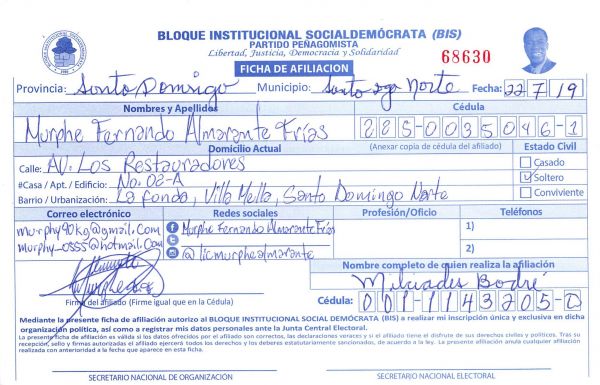 BLOQUE INSTITUCIONAL SOCIALDEMÓCRATA (BIS)
PARTIDO PEÑAGOMISTA
Libertad, Justicia, Democracia y Solidaridad
68630
FICHA DE AFILIACION
Provincia: Santo Domingo Municipio: Santo Dgo Norte Fecha: 22-7-19
Nombres y Apellidos Cédula
Murphe Fernando Almarante Frías 225-0035046-1
Domicilio Actual (Anexar copia de cédula del afiliado) Estado Civil
Calle: AV. Los Restauradores Casado
#Casa / Apt. / Edificio: No. 02-A Soltero
Barrio / Urbanización: La fonda, Villa Mella, Santo Domingo Norte Conviviente
Correo electrónico Redes sociales Profesión/Oficio Teléfonos
murphy90kg@gmail.com Murphe Fernando Almarante Frías 1)
murphy_0555@hotmail.com @licmurphealmarante 2)
Nombre completo de quien realiza la afiliación
Milciades Bodré
Firma del afiliado (Firme igual que en la Cédula) Cédula: 001-1143205-0
Mediante la presente ficha de afiliación autorizo al BLOQUE INSTITUCIONAL SOCIAL DEMÓCRATA (BIS) a realizar mi inscripción única y exclusiva en dicha
organización política, así como a registrar mis datos personales ante la Junta Central Electoral.
La presente ficha de afiliación es válida si los datos ofrecidos por el afiliado son correctos, las declaraciones voraces y si el afiliado tiene el disfrute de sus derechos civiles y políticos. Tras su
recepción, sello y firmas autorizadas el afiliado ejercerá todos los derechos y los deberes estatutariamente sancionados, de acuerdo a la ley. La presente afiliación anula cualquier afiliación
realizada con anterioridad a la fecha que aparece en esta ficha.
SECRETARIO NACIONAL DE ORGANIZACIÓN SECRETARIO NACIONAL ELECTORAL